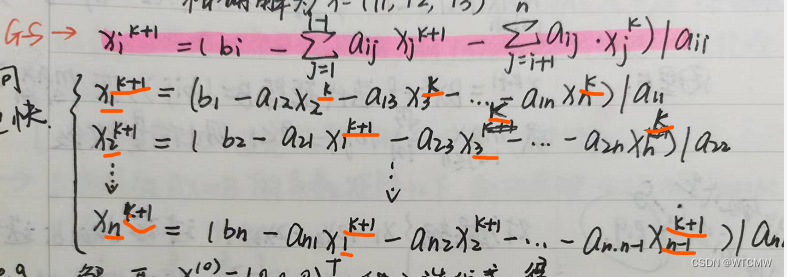 GS → xᵢᵏ⁺¹ = ( bᵢ - ∑ⱼ₌₁ⁱ⁻¹ aᵢⱼ xⱼᵏ⁺¹ - ∑ⱼ₌ᵢ₊₁ⁿ aᵢⱼ · xⱼᵏ ) / aᵢᵢ
x₁ᵏ⁺¹ = (b₁ - a₁₂x₂ᵏ - a₁₃x₃ᵏ - ... - a₁ₙxₙᵏ) / a₁₁
快. x₂ᵏ⁺¹ = ( b₂ - a₂₁x₁ᵏ⁺¹ - a₂₃x₃ᵏ - ... - a₂ₙxₙᵏ) / a₂₂
⋮ ⋮
xₙᵏ⁺¹ = ( bₙ - aₙ₁x₁ᵏ⁺¹ - aₙ₂x₂ᵏ⁺¹ - ... - aₙ.ₙ₋₁xₙ₋₁ᵏ⁺¹ ) / aₙ
CSDN @WTCMW